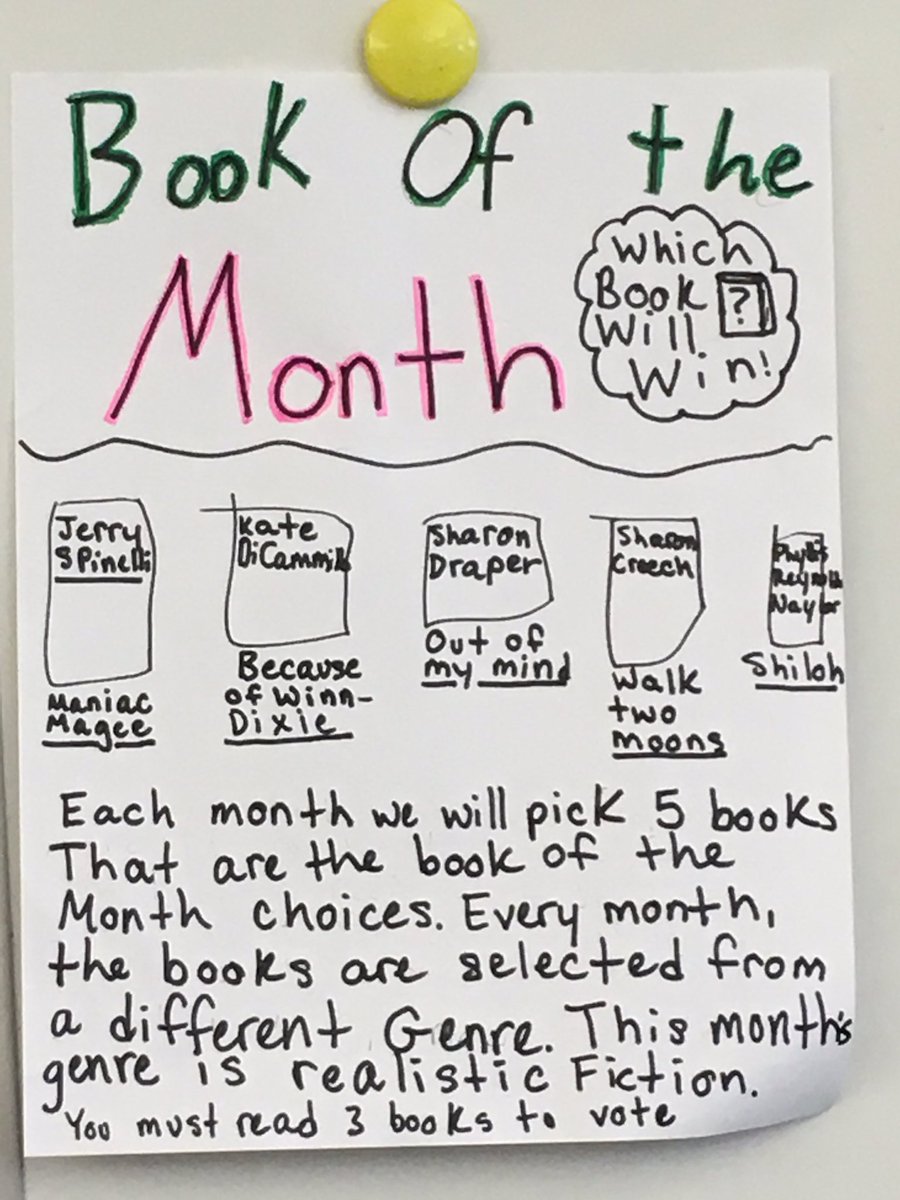 Book Of the
Month
Which
Book ?
Will
Win!
Jerry
Spinelli
Maniac
Magee
Kate
DiCammillo
Because
of Winn-
Dixie
Sharon
Draper
Out of
my mind
Sharon
Creech
Walk
two
moons
Phyllis
Reynolds
Naylor
Shiloh
Each month we will pick 5 books
That are the book of the
Month choices. Every month,
the books are selected from
a different Genre. This month's
genre is realistic Fiction.
You must read 3 books to vote